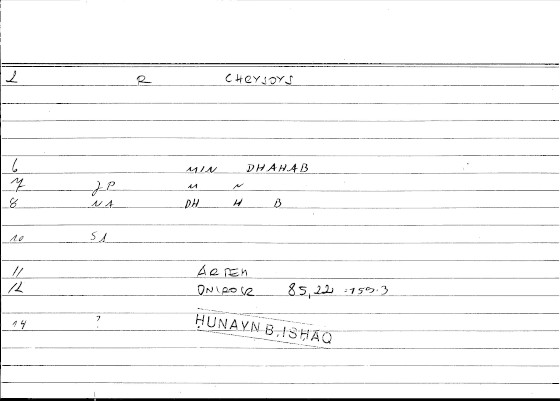 2 R CHRYSOYS
6 MIN DHAHAB
7 JP M N
8 NA DH H B
10 SA
11 ARTEM
12 ONIROCR 85,22 -159.3
14 ? ḤUNAYN B. ISḤAQ